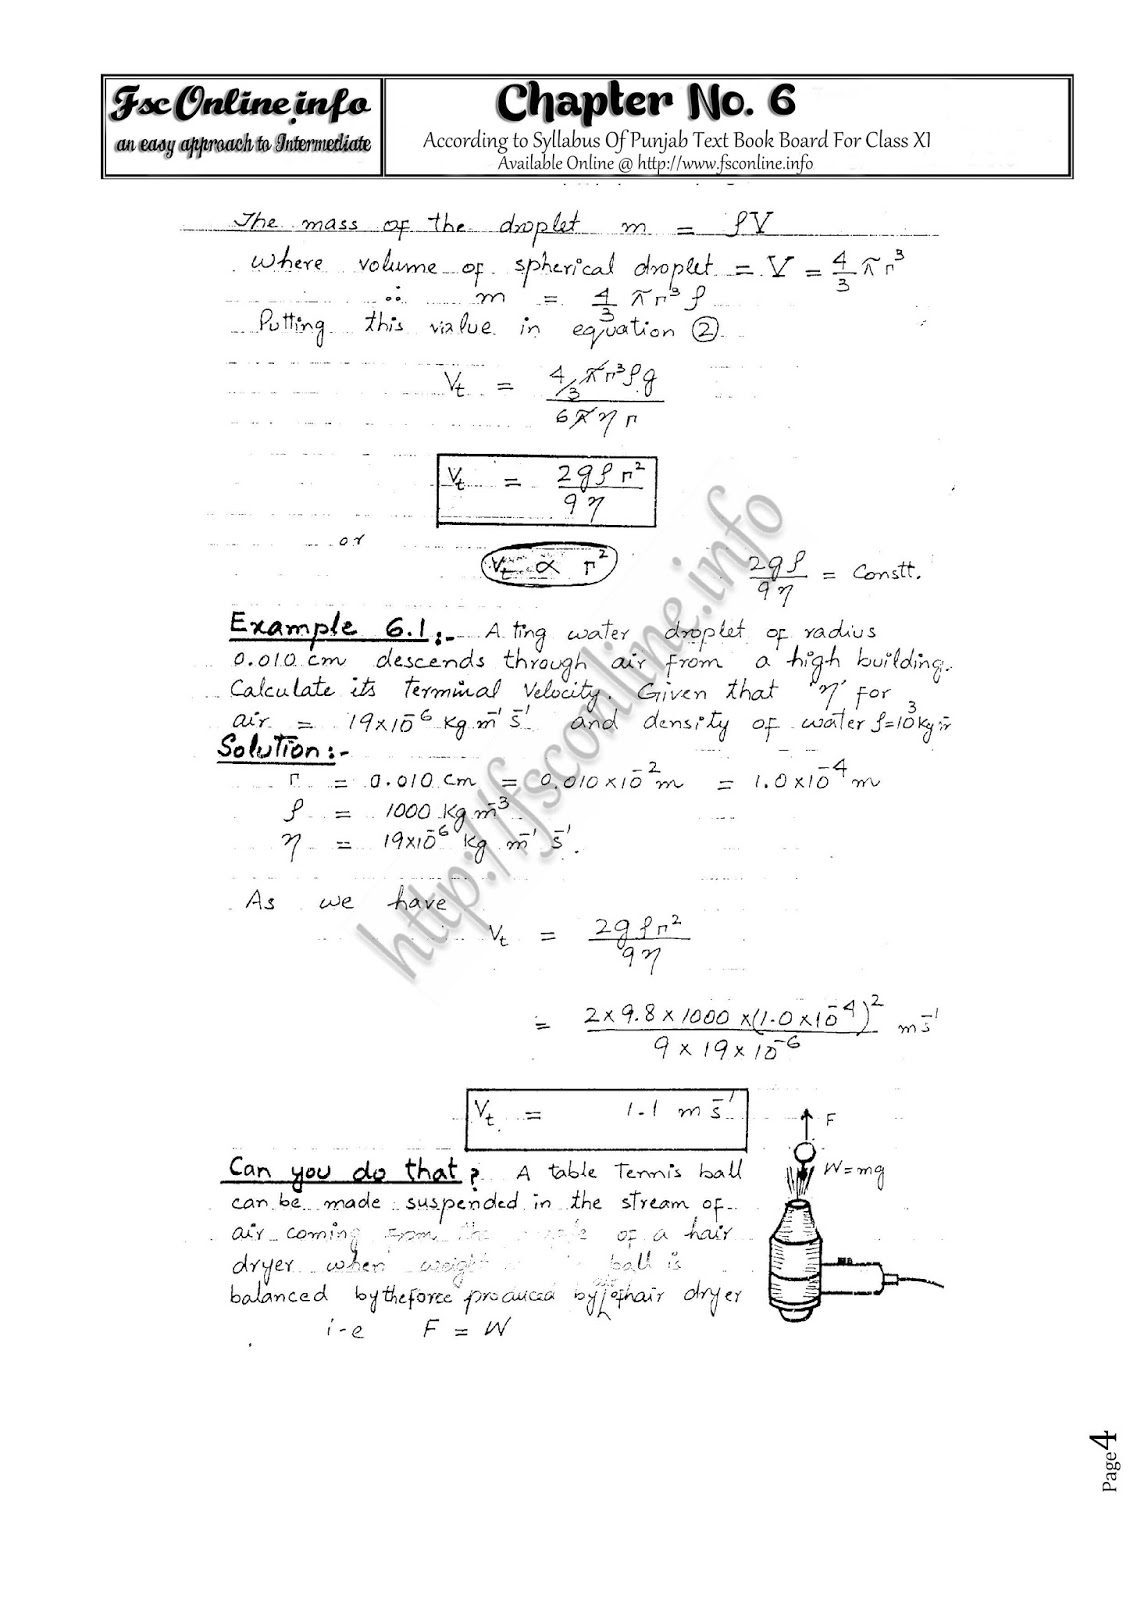 Fsc Online.info
an easy approach to Intermediate
Chapter No. 6
According to Syllabus Of Punjab Text Book Board For Class XI
Available Online @ http://www.fsconline.info
The mass of the droplet m = ρV
where volume of spherical droplet = V = 4/3 πr³
∴ m = 4/3 πr³ρ
Putting this value in equation ②
Vt = 4/3 πr³ρg / 6πηr
Vt = 2gρr² / 9η
or
Vt ∝ r²
2gρ / 9η = Constt.
Example 6.1:- A ting water droplet of radius
0.010 cm descends through air from a high building.
Calculate its Terminal Velocity. Given that "η" for
air = 19×10⁻⁶ kg m⁻¹ s⁻¹ and density of water ρ=10³kg
Solution:-
r = 0.010 cm = 0.010×10⁻²m = 1.0×10⁻⁴m
ρ = 1000 Kg m⁻³
η = 19×10⁻⁶ Kg m⁻¹ s⁻¹.
As we have
Vt = 2gρr² / 9η
= 2×9.8×1000×(1.0×10⁻⁴)² / 9×19×10⁻⁶ ms⁻¹
Vt = 1.1 m s⁻¹
Can you do that? A table Tennis ball
can be made suspended in the stream of
air coming from the of a hair
dryer when weight ball is
balanced by the force produced by hair dryer
i-e F = W
F
W=mg
http://fsconline.info
Page4